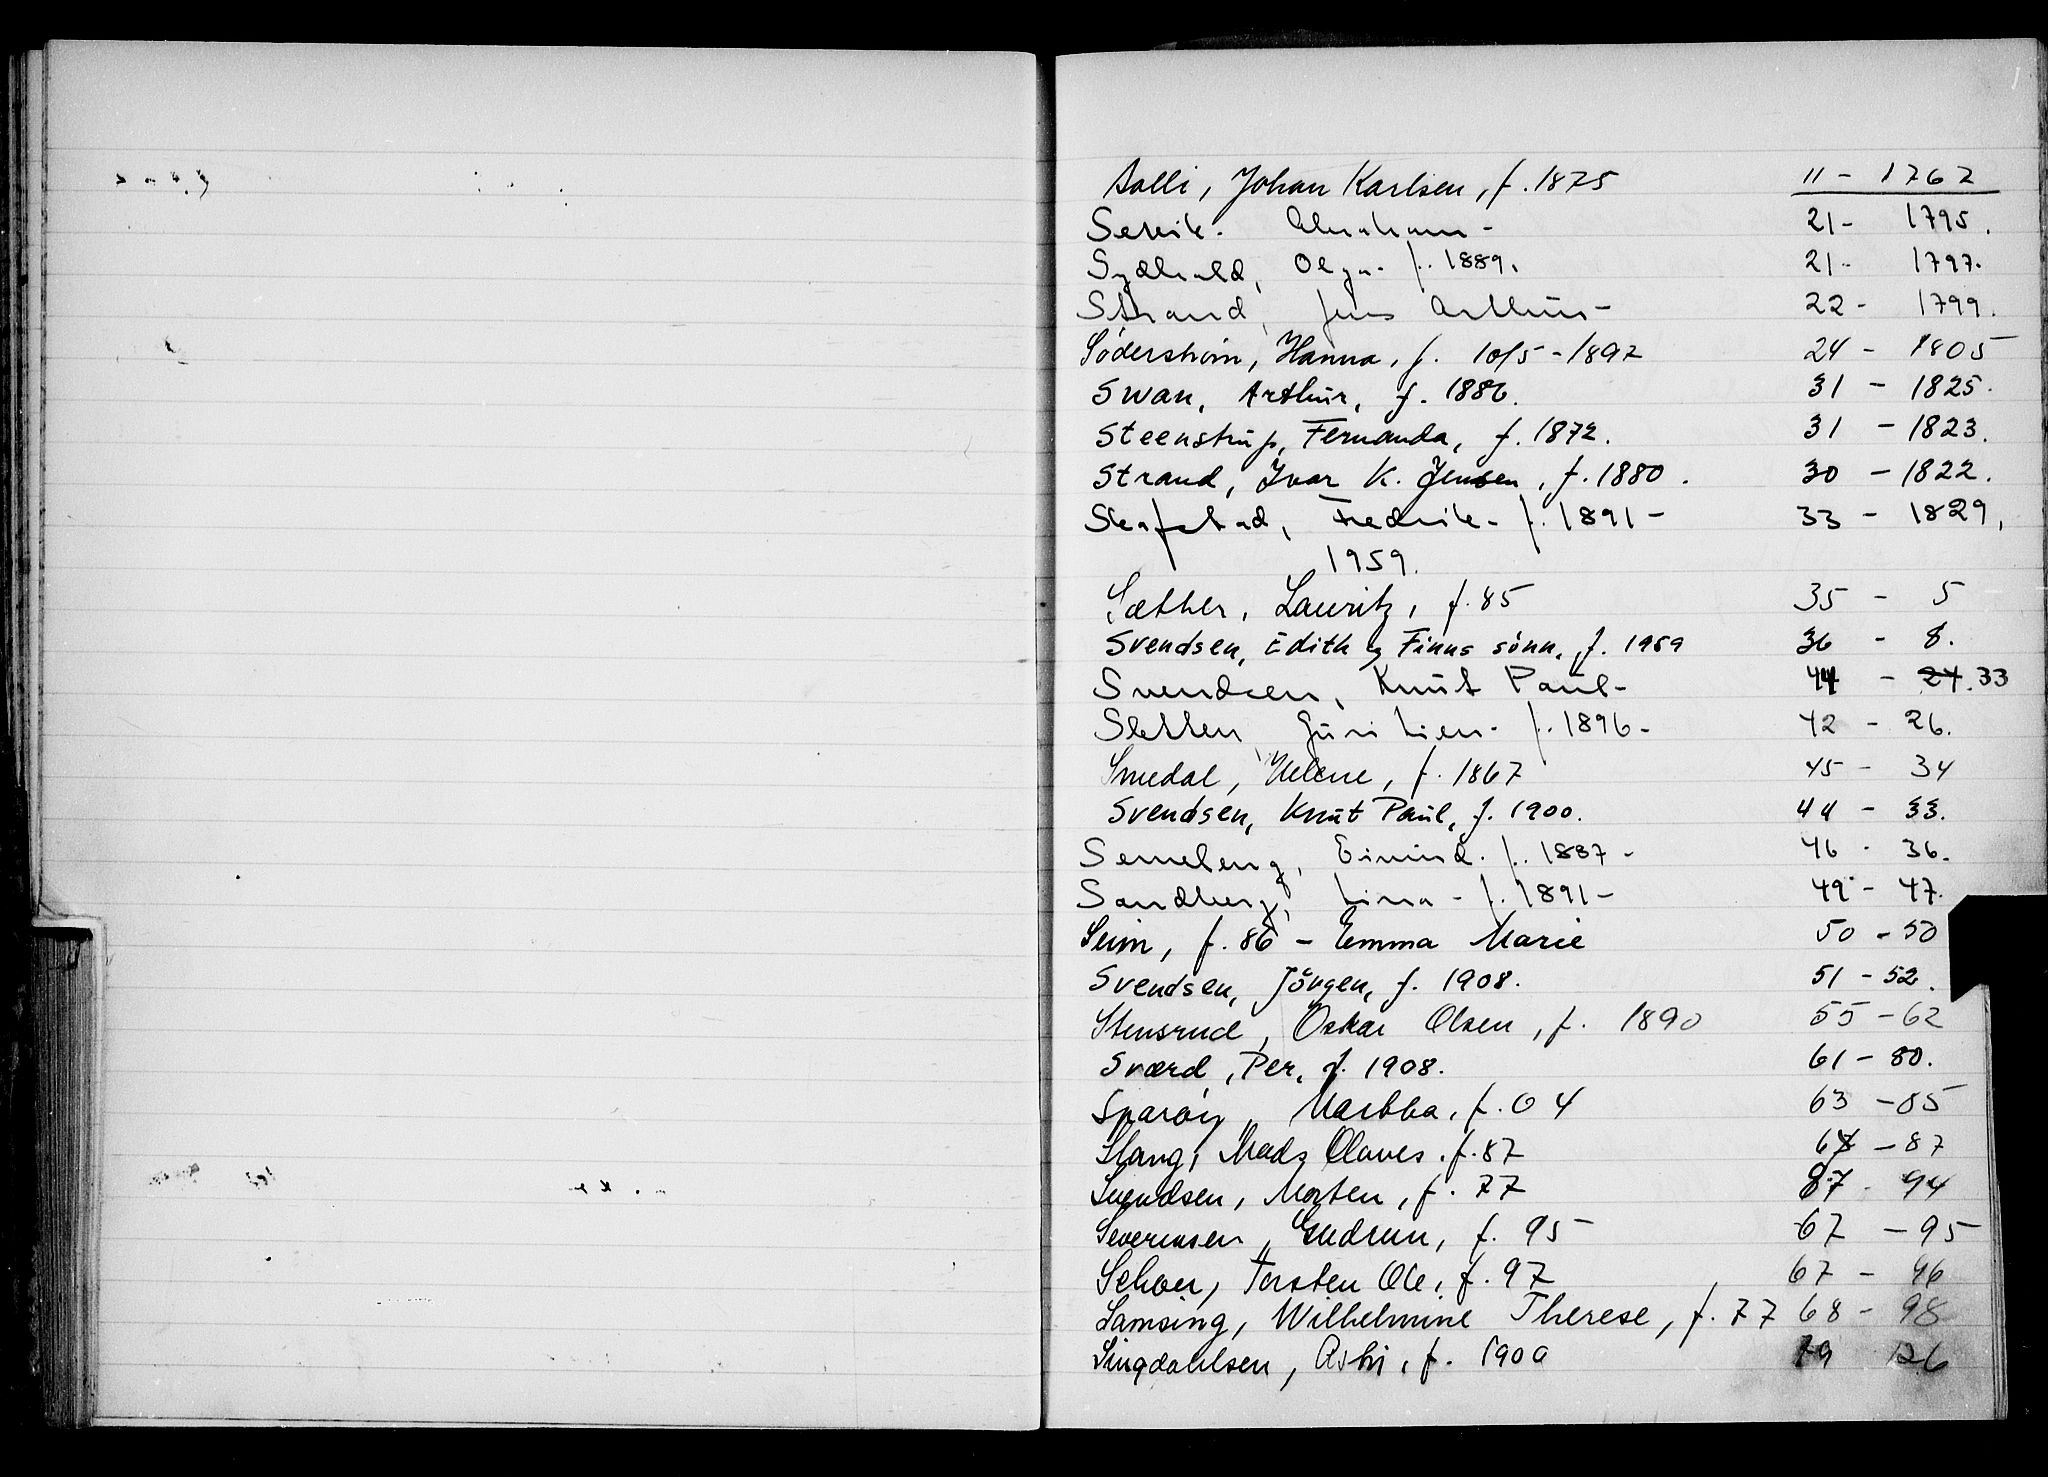 Solli, Johan Karlsen, f. 1875 11 - 1762
Servik. Abraham - 21 - 1795.
Sydhald, Olga. f. 1889. 21 - 1797.
Strand, Jens Arthur - 22 - 1799.
Söderström, Hanna, f. 10/5 - 1892 24 - 1805
Swan, Arthur, f. 1886. 31 - 1825.
Steenstrup, Fernanda, f. 1872. 31 - 1823.
Strand, Ivar K. Jensen, f. 1880. 30 - 1822.
Skafstad, Fredrik - f. 1891 - 33 - 1829.
1959.
Sæther, Lauritz, f. 85 35 - 5
Svendsen, Edith og Finns sönn, f. 1959 36 - 8.
Svendsen, Knut Paul - 44 - 24. 33
Sletten Guri Lien - f. 1896 - 42 - 26.
Smedal, Helene, f. 1867 45 - 34
Svendsen, Knut Paul, f. 1900. 44 - 33.
Semeleng, Eivind. f. 1887 - 46 - 36.
Sandberg, Lina - f. 1891 - 49 - 47.
Seim, f. 86 - Emma Marie 50 - 50
Svendsen, Jörgen, f. 1908. 51 - 52.
Stensrud, Oskar Olsen, f. 1890 55 - 62
Sværd, Per, f. 1908. 61 - 80.
Sparöy, Martha, f. 04 63 - 85
Slang, Mads Olaves. f. 87 64 - 87
Svendsen, Morten, f. 77 67 - 94
Severinsen, Gudrun, f. 95 67 - 95
Torsten Ole, f. 97 67 - 96
Samsing, Wilhelmine Therese, f. 77 68 - 98
Singdahlsen, f. 1900 79 126